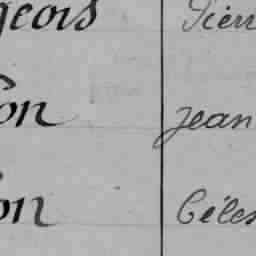 geois Pierr
on Jean
on Céles